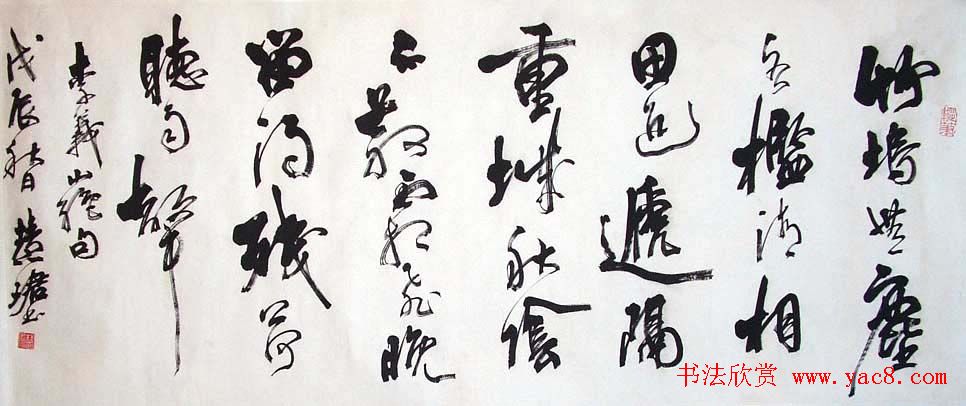 竹塢無塵
水檻清相
思迢遞隔
重城秋陰
不散霜飛晚
留得殘荷
聽雨聲
李義山絕句
戊辰秋日 慧珺书
书法欣赏 www.yac8.com